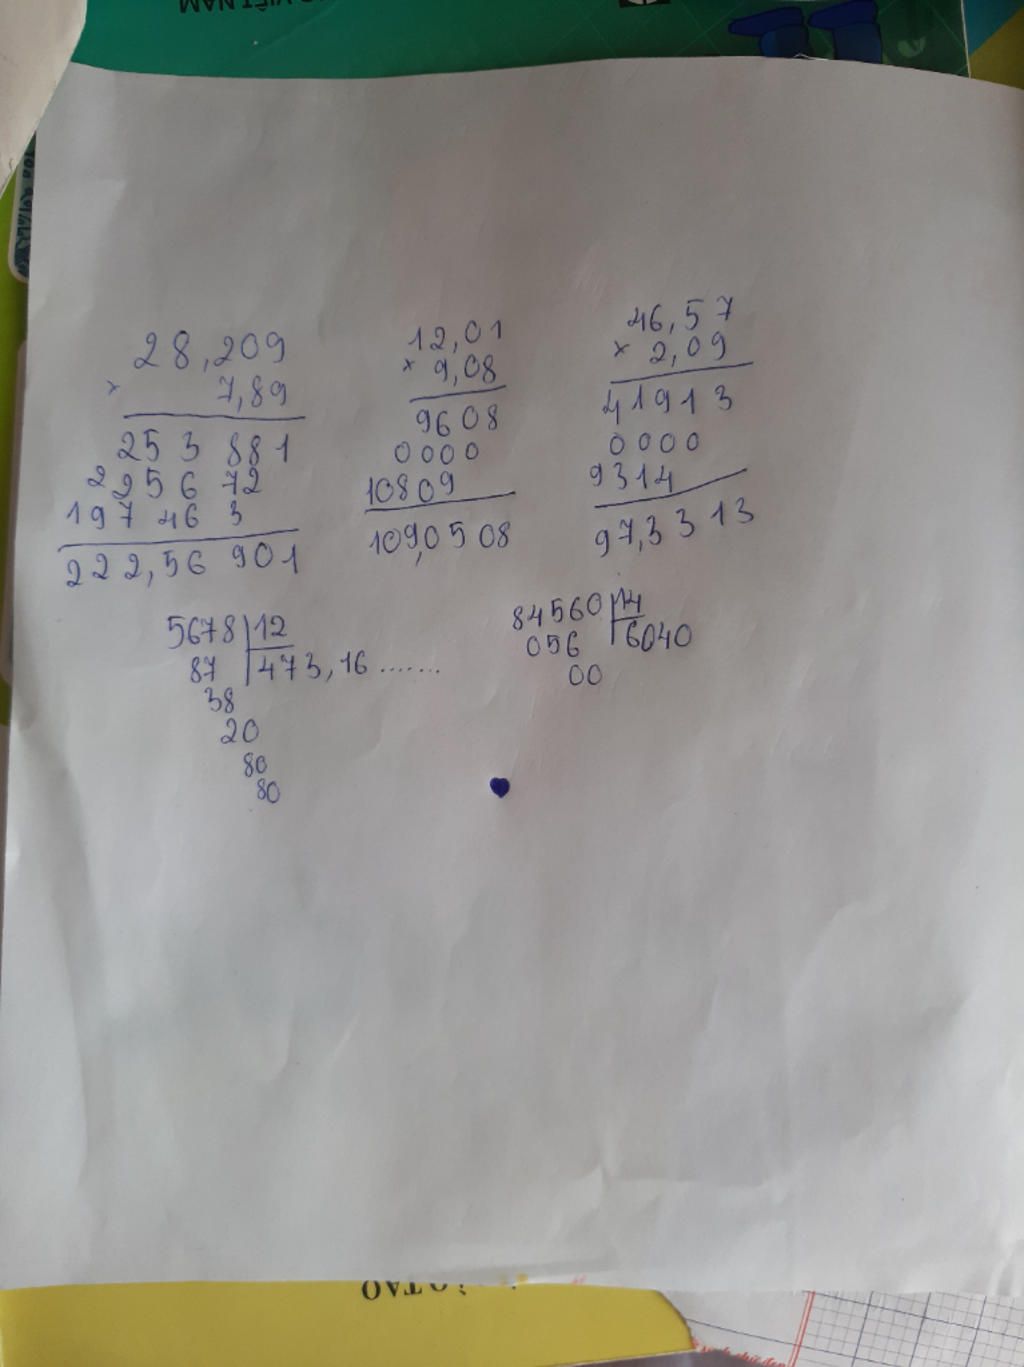 VIỆT NAM
28,209
×
7,89
253 881
2256 72
197 46 3
222,56 901
12,01
× 9,08
9608
0000
10809
109,0508
46,57
× 2,09
41913
0000
9314
97,3313
5678 12
87 473,16.......
38
20
80
80
84560 14
056 6040
00
TẠO